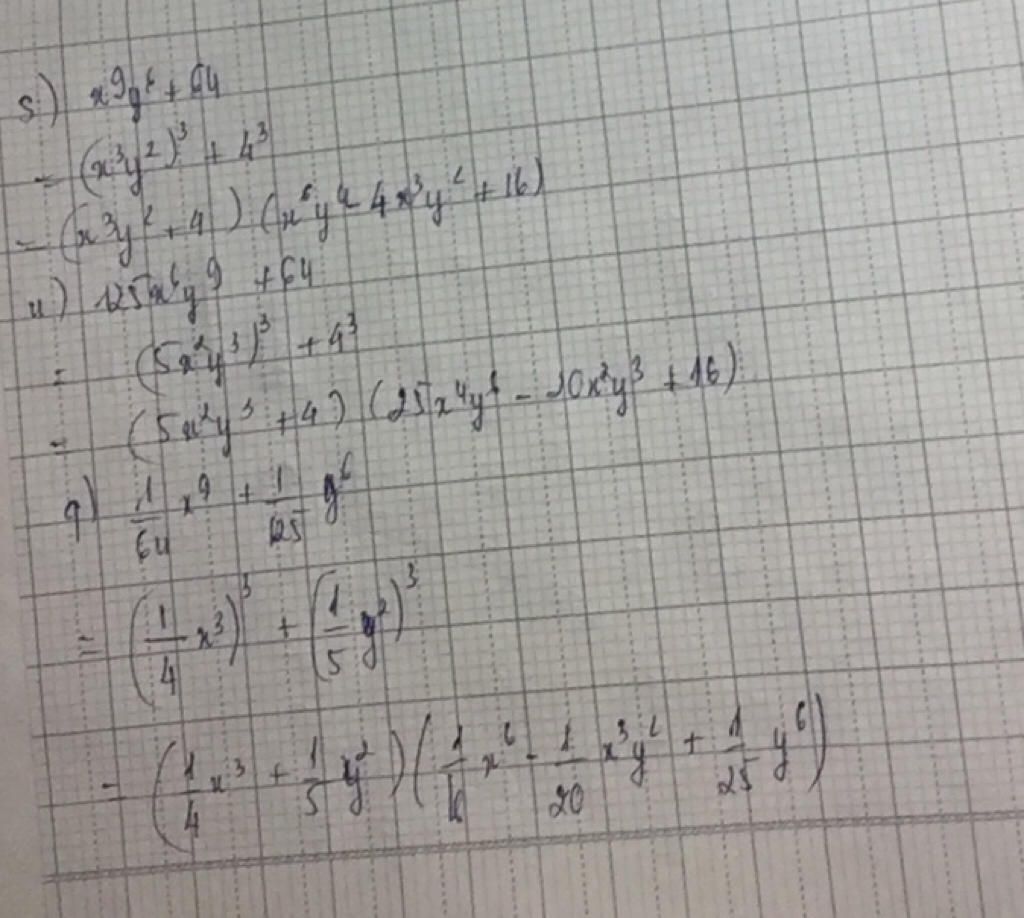 s) x⁹y⁶ + 64
= (x³y²)³ + 4³
= (x³y² + 4) (x⁶y⁴ - 4x³y² + 16)
u) 125x⁶y⁹ + 64
= (5x²y³)³ + 4³
= (5x²y³ + 4) (25x⁴y⁶ - 20x²y³ + 16)
q) 1/64 x⁹ + 1/125 y⁶
= (1/4 x³)³ + (1/5 y²)³
= (1/4 x³ + 1/5 y²) (1/16 x⁶ - 1/20 x³y² + 1/25 y⁶)